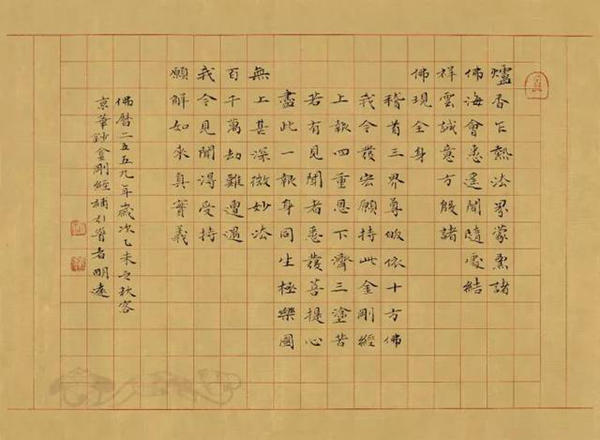 爐香乍熱法界蒙熏諸
佛海會悉遥聞隨處結
祥雲誠意方殷諸
佛現全身
稽首三界尊皈依十方佛
我今發宏願持此金剛經
上報四重恩下濟三塗苦
若有見聞者悉發菩提心
盡此一報身同生極樂國
無上甚深微妙法
百千萬劫難遭遇
我今見聞得受持
願解如來真實義
佛曆二五五九年歲次乙未之秋客
京華鈔金剛經補引首者明遠